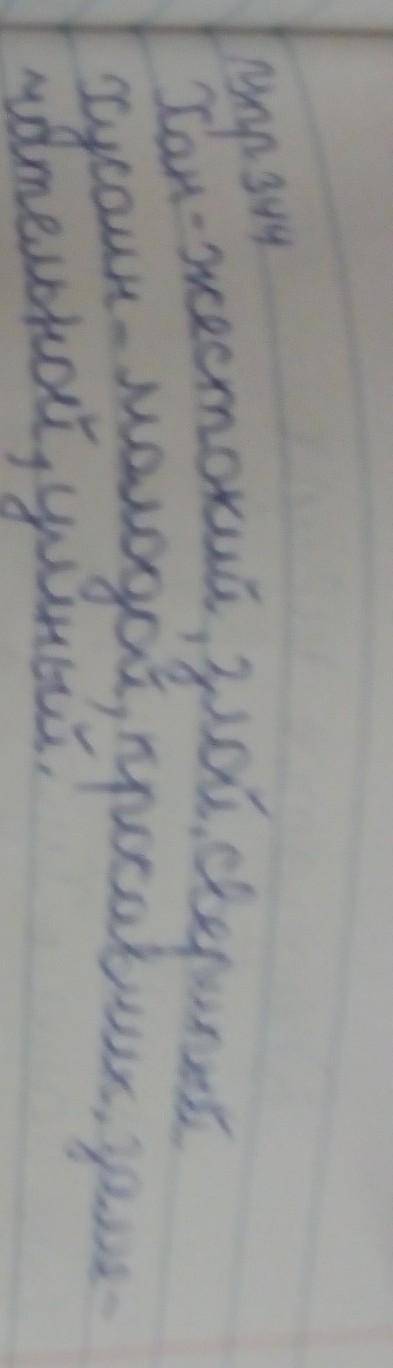 Упр 344
Хан - жестокий, злой, свирепый.
Хусаин - молодой, красавчик, заме-
чательной, умный.